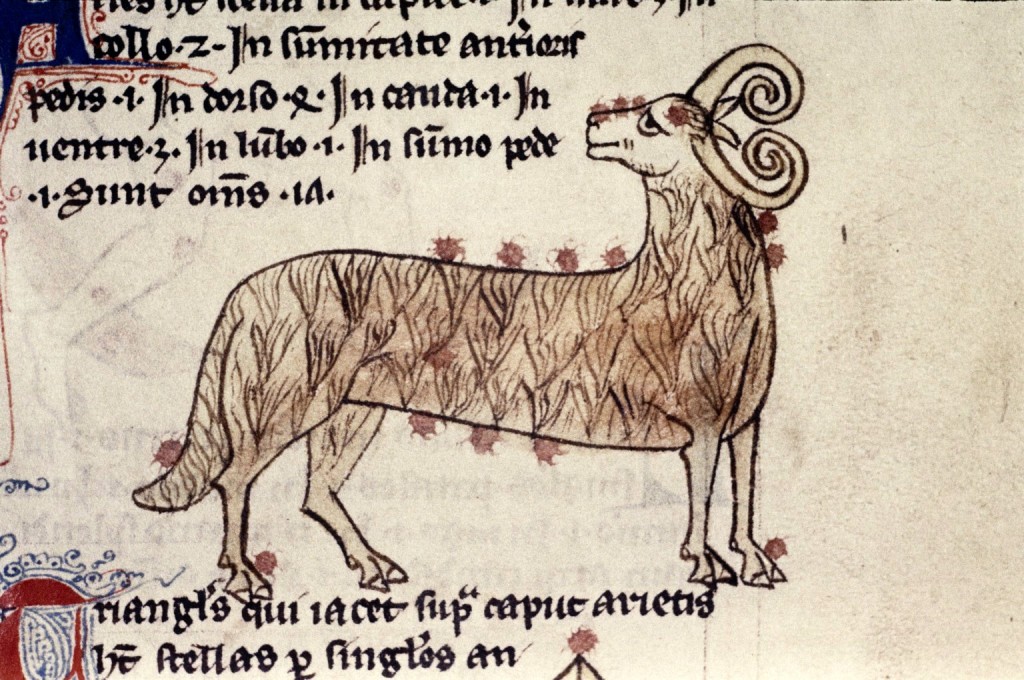 ries ht̄ stellā in capite .i. In nare .3. In
collo .2. In sūmitate anterioris
pedis .i. In dorso .4. In cauda .i. In
uentre .3. In lūbo .i. In sūmo pede
.i. Sunt om̄s .1A.
Triangl's qui iacet sup̄ caput arietis
ht̄ stellas p singl'os an